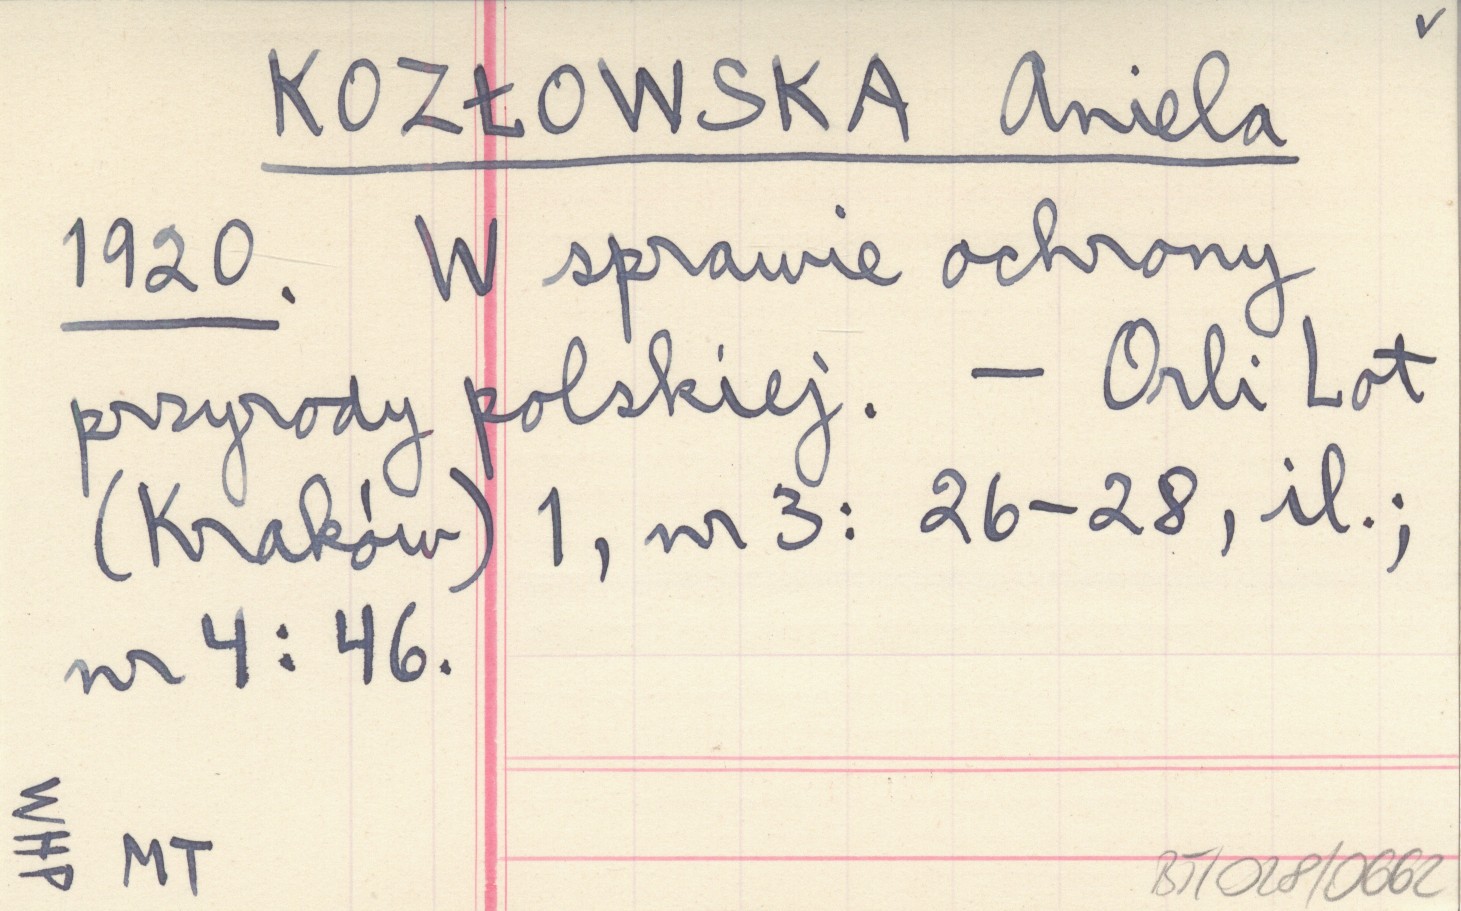 KOZŁOWSKA Aniela
1920. W sprawie ochrony
przyrody polskiej. — Orli Lot
(Kraków) 1, nr 3: 26-28, il.;
nr 4: 46.
WHP
MT
BT/028/0662